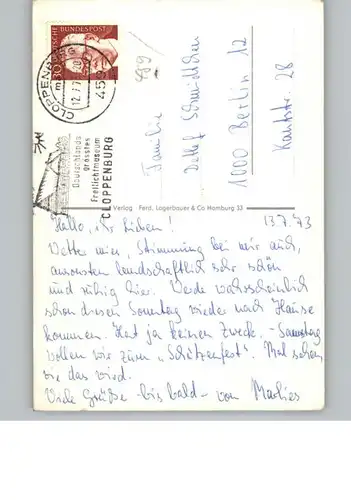 DEUTSCHE BUNDESPOST
30
CLOPPENBURG
459
12.7.7
Deutschlands
grösstes
Freilichtmuseum
CLOPPENBURG
Familie
1000 Berlin 12
Kantstr. 28
Verlag Ferd. Lagerbauer & Co Hamburg 33
Hallo, ihr Lieben! 13.7.73
Wetter mies, Stimmung bei mir auch,
ansonsten landschaftlich sehr schön
und ruhig hier. Werde wahrscheinlich
schon diesen Sonntag wieder nach Hause
kommen. Hat ja keinen Zweck. - Samstag
wollen wir zum "Schützenfest". Mal sehen
wie das wird.
Viele Grüße - bis bald - von Marlies